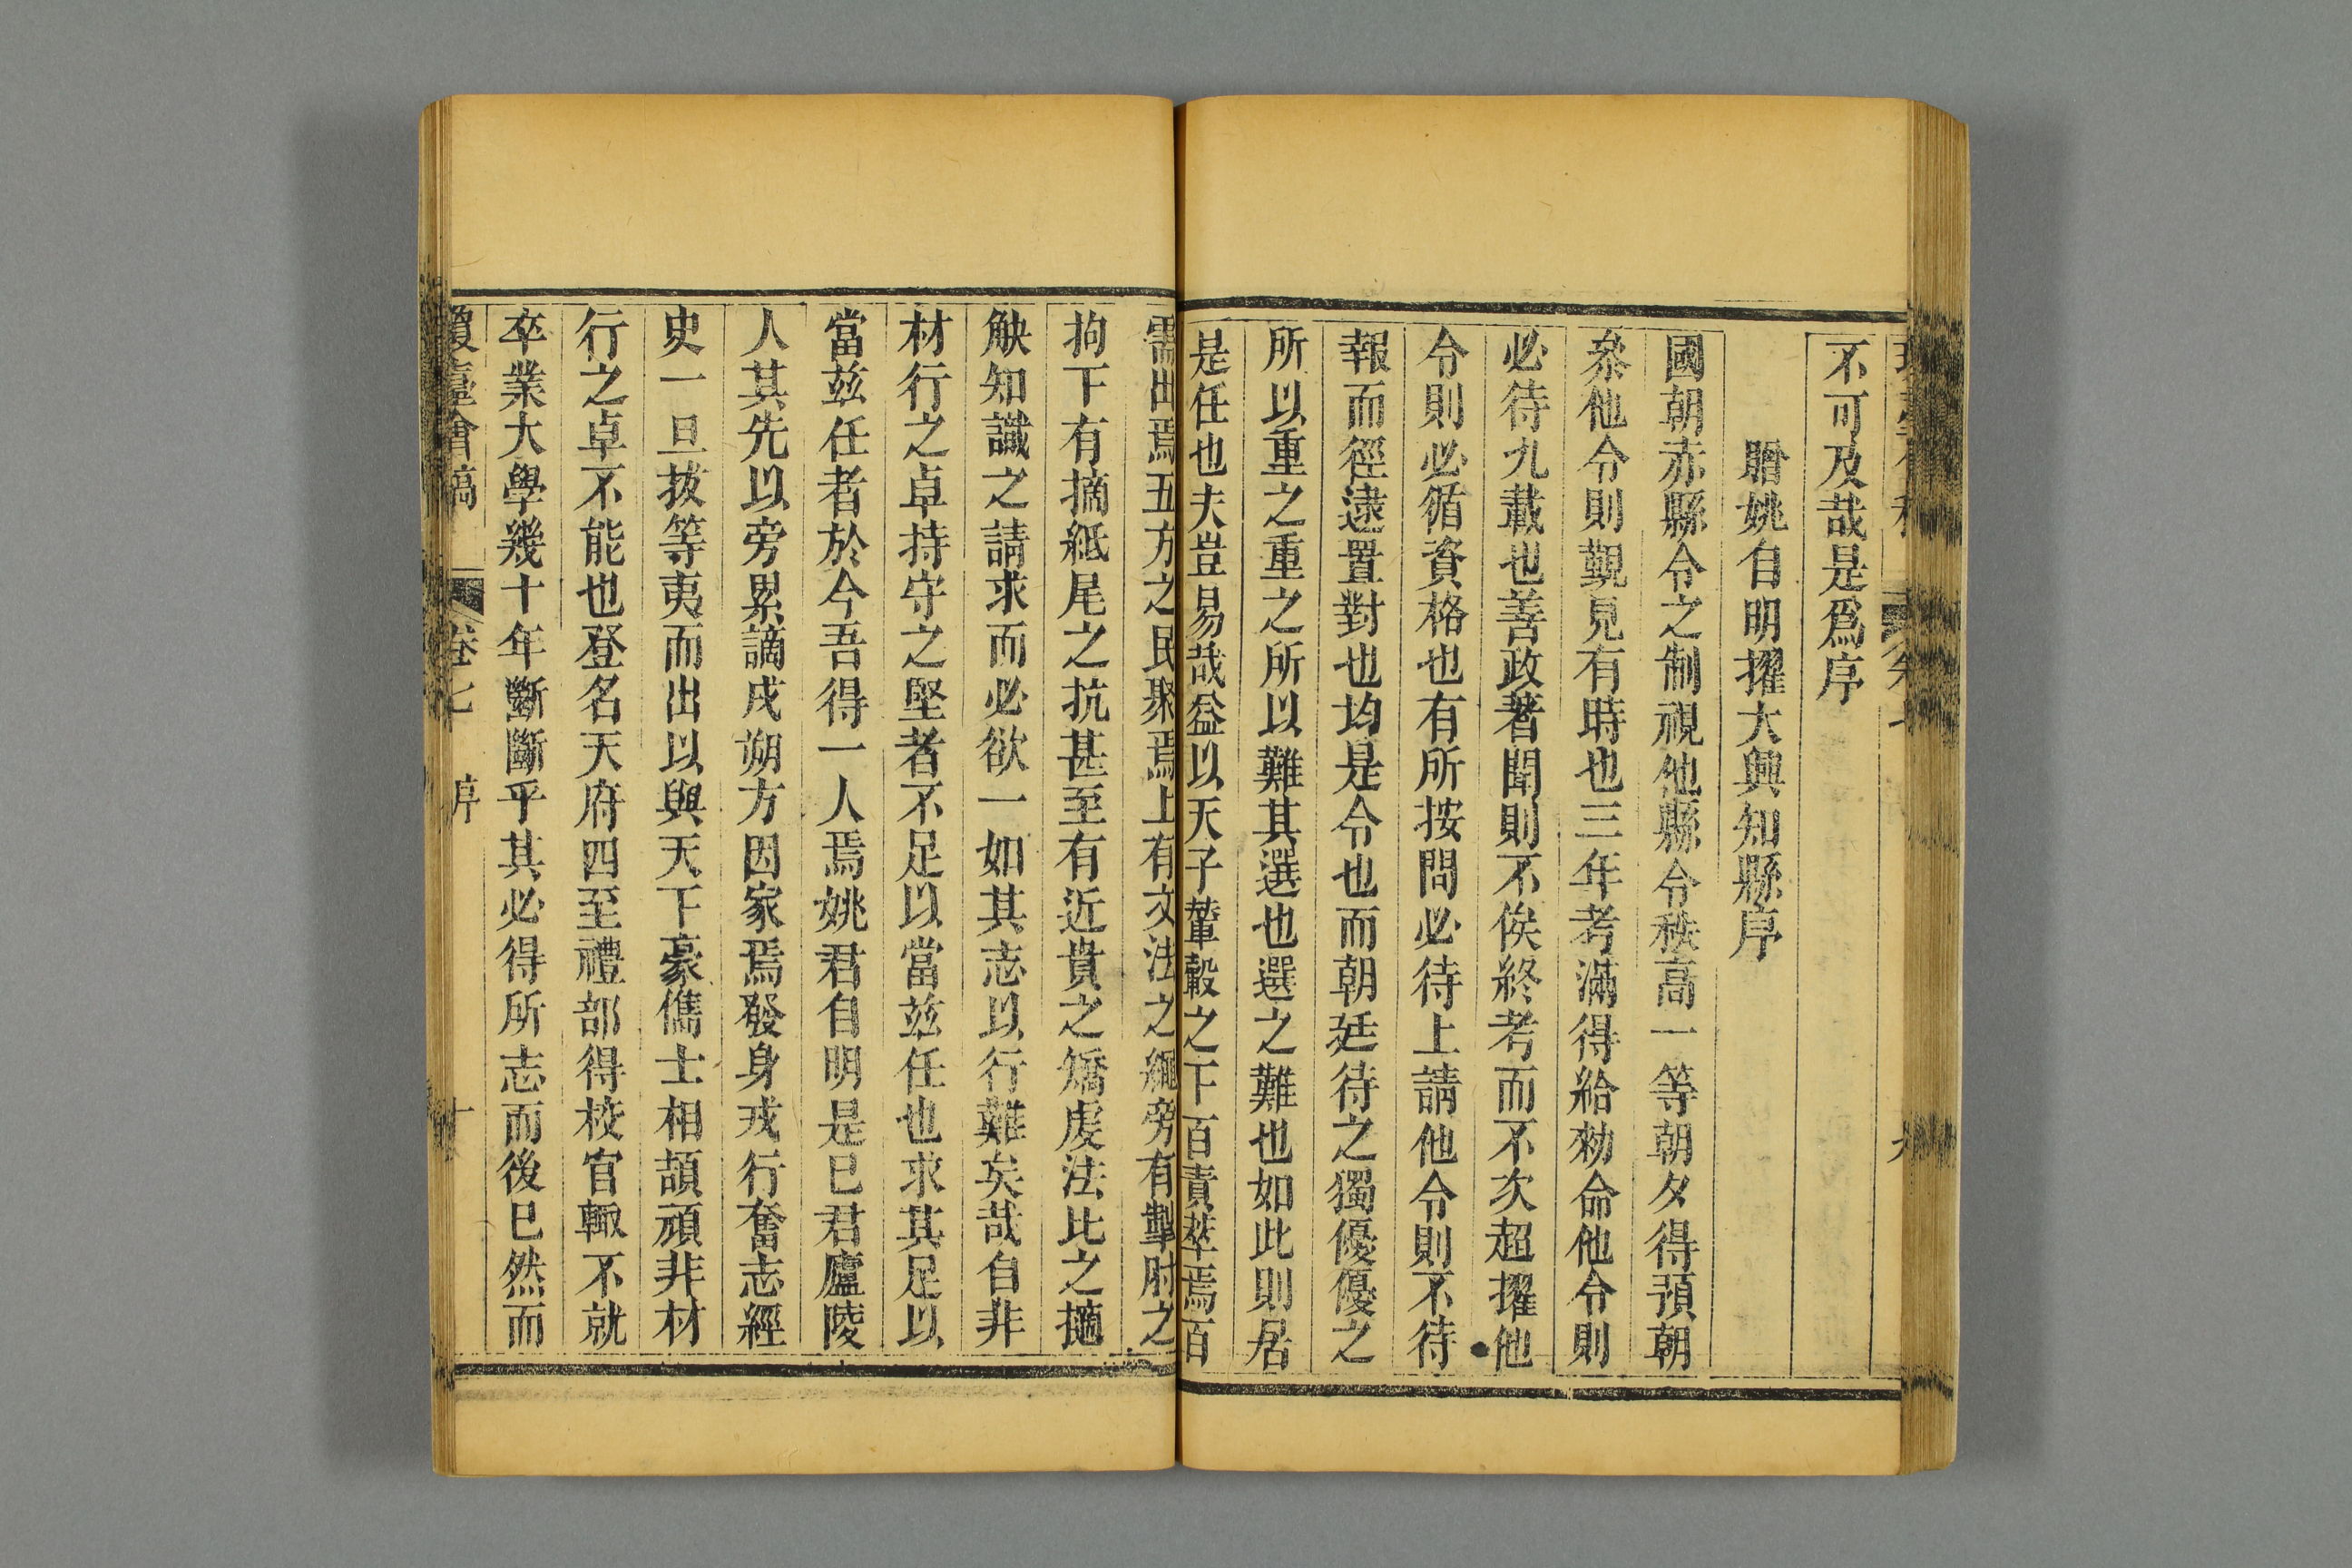 不可及哉是爲序
贈姚自明擢大興知縣序
國朝赤縣令之制視他縣令秩高一等朝夕得預朝
叅他令則覲見有時也三年考滿得給勑命他令則
必待九載也善政著聞則不俟終考而不次超擢他
令則必循資格也有所按問必待上請他令則不待
報而徑逮置對也均是令也而朝廷待之獨優優之
所以重之重之所以難其選也選之難也如此則居
是任也夫豈易哉葢以天子輦轂之下百責萃焉百
需出焉五方之民聚焉上有文法之繩旁有掣肘之
拘下有摘紙尾之抗甚至有近貴之矯虔法比之擿
觖知識之請求而必欲一如其志以行難矣哉自非
材行之卓持守之堅者不足以當兹任也求其足以
當兹任者於今吾得一人焉姚君自明是已君廬陵
人其先以旁累謫戍朔方因家焉發身戎行奮志經
史一旦拔等夷而出以與天下豪儁士相頡頏非材
行之卓不能也登名天府四至禮部得校官輙不就
卒業大學幾十年斷斷乎其必得所志而後已然而
瓊臺會稿 卷七 序 十